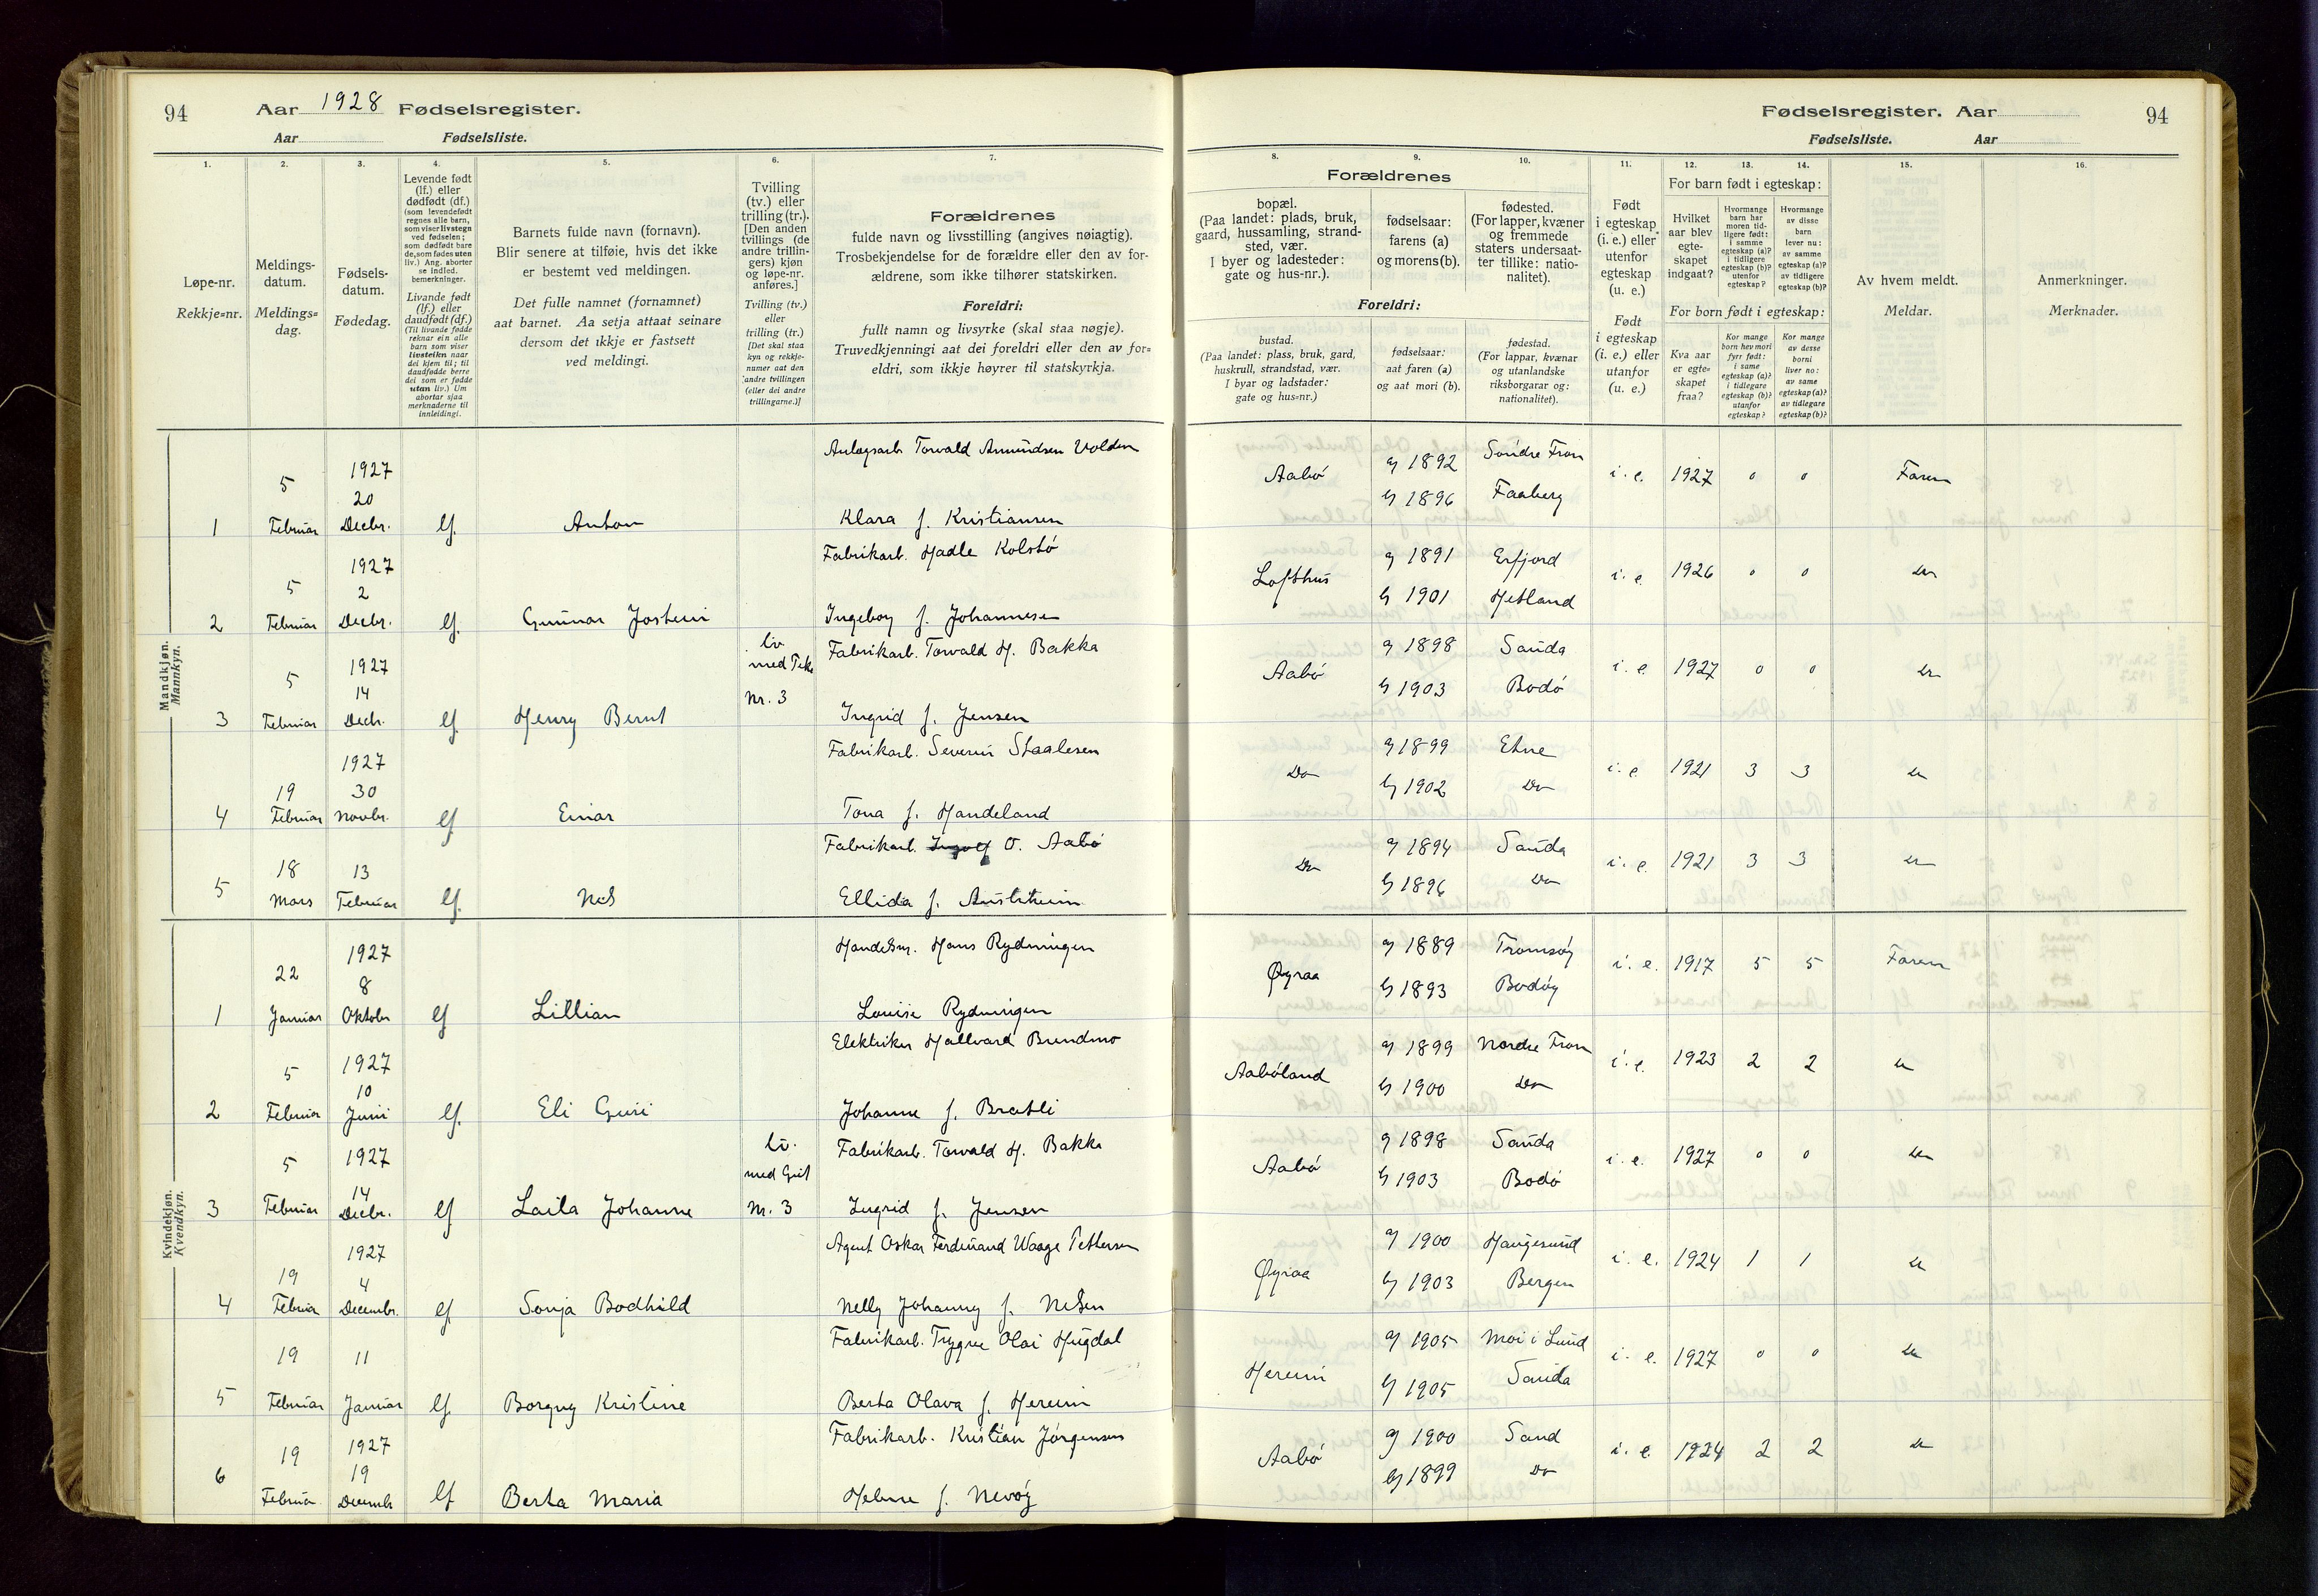 94 Aar 1928 Fødselsregister.
Aar Fødselsliste.
1.
Løpe-nr.
Rekkje=nr.
2.
Meldings-
datum.
Meldings=
dag.
3.
Fødsels-
datum.
Fødedag.
4.
Levende født
(lf.) eller
dødfødt (df.)
(som levendefødt
regnes alle barn,
som viser livstegn
ved fødselen;
som dødfødt bare
de, som fødes uten
liv.) Ang. aborter
se indled.
bemerkninger.
Livande født
(lf.) eller
daudfødt (df.)
(Til livande fødde
reknar ein alle
barn som viser
livsteikn naar
dei kjem til; til
daudfødde berre
dei som er fødde
utan liv.) Um
abortar sjaa
merknaderne til
innleidingi.
5.
Barnets fulde navn (fornavn).
Blir senere at tilføie, hvis det ikke
er bestemt ved meldingen.
Det fulle namnet (fornamnet)
aat barnet. Aa setja attaat seinare
dersom det ikkje er fastsett
ved meldingi.
6.
Tvilling
(tv.) eller
trilling (tr.).
[Den anden
tvillings (de
andre trillin-
gers) kjøn
og løpe-nr.
anføres.]
Tvilling (tv.)
eller
trilling (tr.)
[Det skal staa
kyn og rekkje-
numer aat den
andre tvillingen
(eller dei andre
trillingarne.)]
7.
Forældrenes
fulde navn og livsstilling (angives nøiagtig).
Trosbekjendelse for de forældre eller den av for-
ældrene, som ikke tilhører statskirken.
Foreldri:
fullt namn og livsyrke (skal staa nøgje).
Truvedkjenningi aat dei foreldri eller den av for=
eldri, som ikkje høyrer til statskyrkja.
Fødselsregister. Aar 94
Fødselsliste. Aar
8.
Forældrenes
bopæl.
(Paa landet: plads, bruk,
gaard, hussamling, strand-
sted, vær.
I byer og ladesteder:
gate og hus-nr.).
Foreldri:
bustad.
(Paa landet: plass, bruk, gard,
huskrull, strandstad, vær.
I byar og ladstader:
gate og hus=nr.)
9.
fødselsaar:
farens (a)
og morens (b).
fødselsaar:
aat faren (a)
og aat mori (b).
10.
fødested.
(For lapper, kvæner
og fremmede
staters undersaat-
ter tillike: natio-
nalitet).
fødestad.
(For lappar, kvænar
og utanlandske
riksborgarar og:
nationalitet).
11.
Født
i egteskap
(i. e.) eller
utenfor
egteskap
(u. e.)
Født
i egteskap
(i. e.) eller
utanfor
(u. e.)
12. 13. 14.
For barn født i egteskap:
Hvilket
aar blev
egte-
skapet
indgaat?
Hvormange
barn har
moren tid-
ligere født:
i samme
egteskap (a)?
i tidligere
egteskap (b)?
utenfor
egteskap?
Hvormange
av disse
barn
lever nu:
av samme
egteskap (a)?
av tidligere
egteskap (b)?
For born født i egteskap:
Kva aar
er egte=
skapet
fraa?
Kor mange
born hev mori
fyrr født:
i same
egteskap (a)?
i tidlegare
egteskap (b)?
utanfor
egteskap?
Kor mange
av desse
borni
liver no:
av same
egteskap (a)?
av tidlegare
egteskap (b)?
15.
Av hvem meldt.
Meldar.
16.
Anmerkninger.
Merknader.
Mandkjøn.
Mannkyn.
1 5 Februar 1927 20 Decbr. lf. Anton
Anlægsarb Torvald Amundsen Volden
Klara f. Kristiansen
Aabø a 1892 Søndre Fron i. e. 1927 0 0 Faren
b 1896 Faaberg
2 5 Februar 1927 2 Decbr. lf. Gunnar Jostein
Fabrikarb. Hadle Kolstø
Ingeborg f. Johannesen
Lofthus a 1891 Erfjord i. e. 1926 0 0 Do
b 1901 Hetland
3 5 Februar 1927 14 Decbr. lf. Henry Bernt tv. med Pike Nr. 3
Fabrikarb. Torvald H. Bakka
Ingrid f. Jensen
Aabø a 1898 Sauda i. e. 1927 0 0 Do
b 1903 Bodø
4 19 Februar 1927 30 Novbr. lf Einar
Fabrikarb. Severin Staalesen
Tona f. Handeland
Do a 1899 Etne i. e. 1921 3 3 Do
b 1902 Do
5 18 Mars 13 Februar lf. Nils
Fabrikarb. Ingolf O. Aabø
Ellida f. Austrheim
Do a 1894 Sauda i. e. 1921 3 3 Do
b 1896 Do
Kvindekjøn.
Kvendkyn.
1 22 Januar 1927 8 Oktober lf Lillian
Handelsm. Hans Rydningen
Louise Rydningen
Øyraa a 1889 Tromsøy i. e. 1917 5 5 Faren
b 1893 Bodøy
2 5 Februar 1927 10 Juni lf. Eli Guri
Elektriker Hallvard Brendmo
Johanne f. Bratli
Aabøland a 1899 Nordre Fron i. e. 1923 2 2 Do
b 1900 Do
3 5 Februar 1927 14 Decbr. lf Laila Johanne tv. med Gut Nr. 3
Fabrikarb. Torvald H. Bakka
Ingrid f. Jensen
Aabø a 1898 Sauda i. e. 1927 0 0 Do
b 1903 Bodø
4 19 Februar 1927 4 Decembr. lf Sonja Bodhild
Agent Oskar Ferdinand Waage Pettersen
Nelly Johanny f. Nilsen
Øyraa a 1900 Haugesund i. e. 1924 1 1 Do
b 1903 Bergen
5 19 Februar 11 Januar lf. Borgny Kristine
Fabrikarb. Trygve Olai Hugdal
Berta Olava f. Hereim
Hereim a 1905 Moi i Lund i. e. 1927 0 0 Do
b 1905 Sauda
6 19 Februar 1927 19 Decembr lf Berta Maria
Fabrikarb. Kristian Jørgensen
Helene f. Nevøy
Aabø a 1900 Sand i. e. 1924 2 2 Do
b 1899 Do